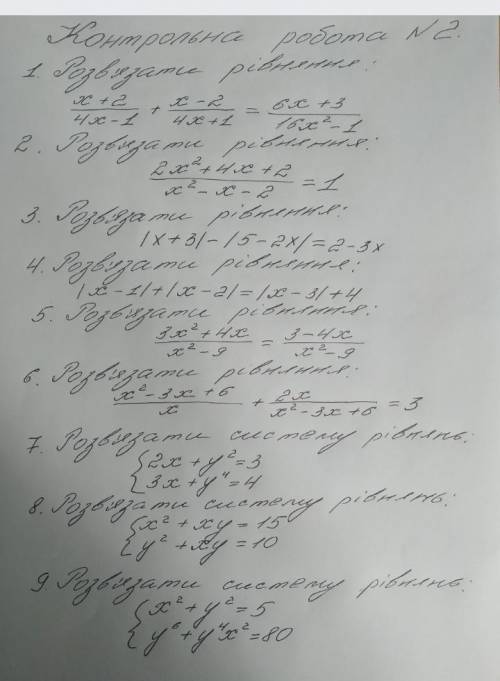 Контрольна робота №2.
1. Розв'язати рівняння:
(x+2)/(4x-1) + (x-2)/(4x+1) = (6x+3)/(16x²-1)
2. Розв'язати рівняння:
(2x²+4x+2)/(x²-x-2) = 1
3. Розв'язати рівняння:
|x+3|-|5-2x|=2-3x
4. Розв'язати рівняння:
|x-1|+|x-2|=|x-3|+4
5. Розв'язати рівняння:
(3x²+4x)/(x²-9) = (3-4x)/(x²-9)
6. Розв'язати рівняння:
(x²-3x+6)/x + 2x/(x²-3x+6) = 3
7. Розв'язати систему рівнянь:
{2x+y²=3
{3x+y⁴=4
8. Розв'язати систему рівнянь:
{x²+xy=15
{y²+xy=10
9. Розв'язати систему рівнянь:
{x²+y²=5
{y⁶+y⁴x²=80